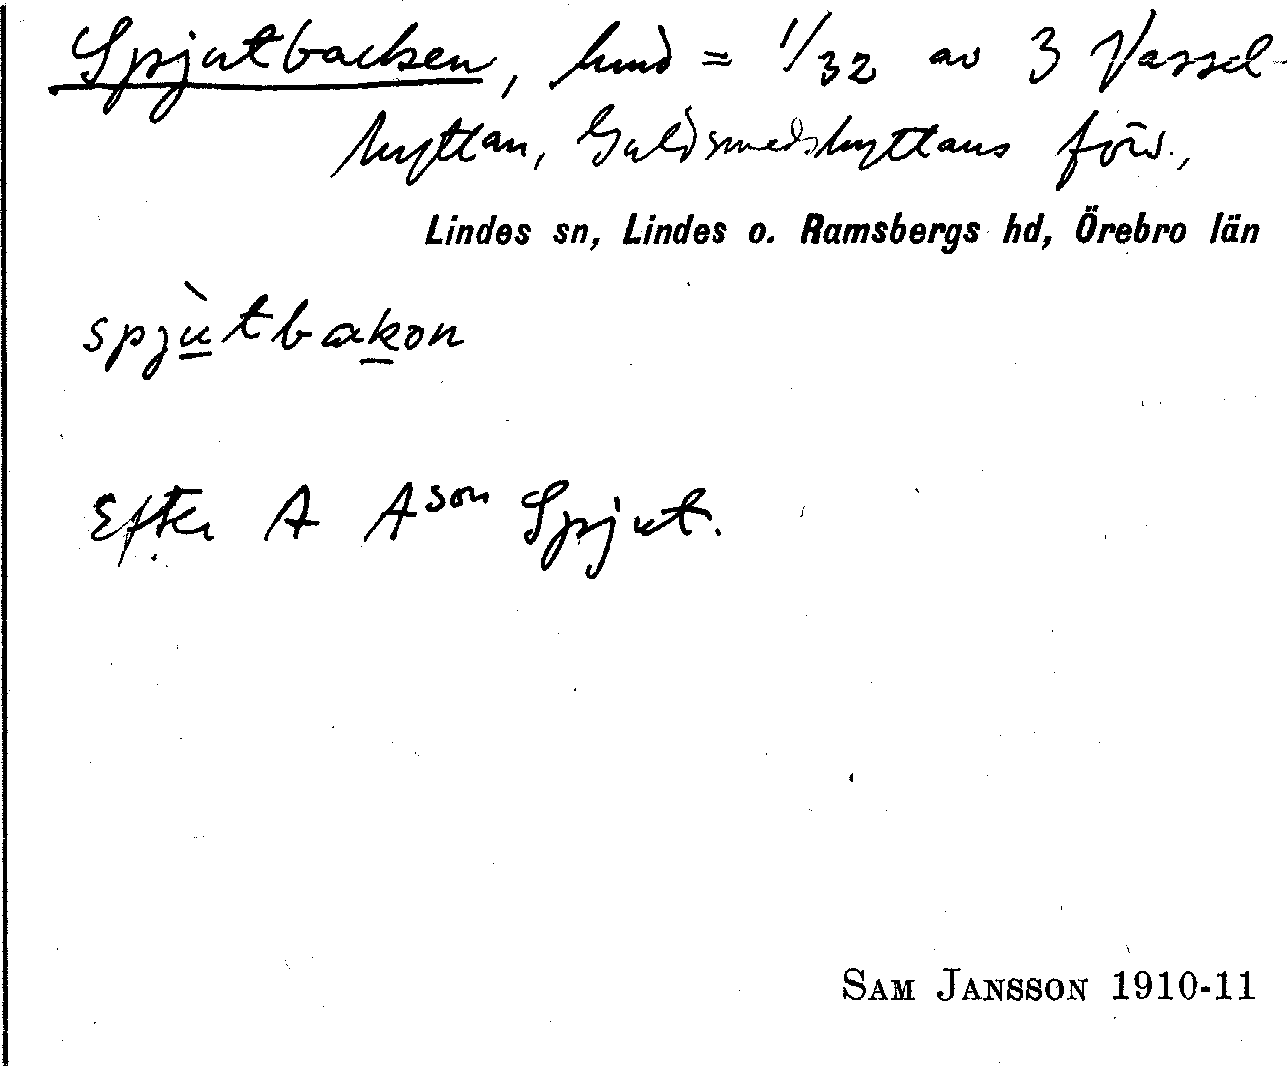 Spjutbacken, hmd = 1/32 av 3 Vassel-
hyttan, Guldsmedshyttans förs.,
Lindes sn, Lindes o. Ramsbergs hd, Örebro län
spjùtbakon
Efter A Ason Spjut.
SAM JANSSON 1910-11